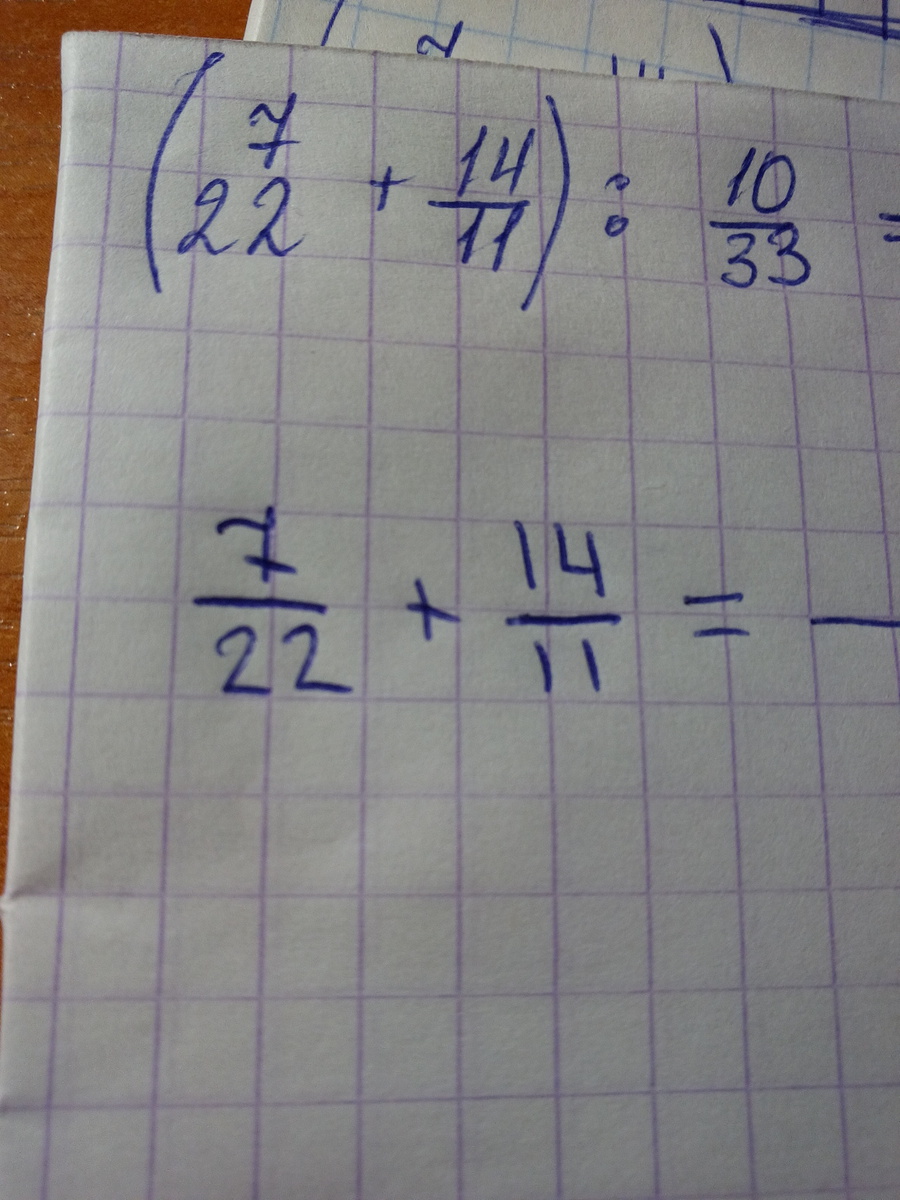 (7/22 + 14/11) : 10/33 =
7/22 + 14/11 =